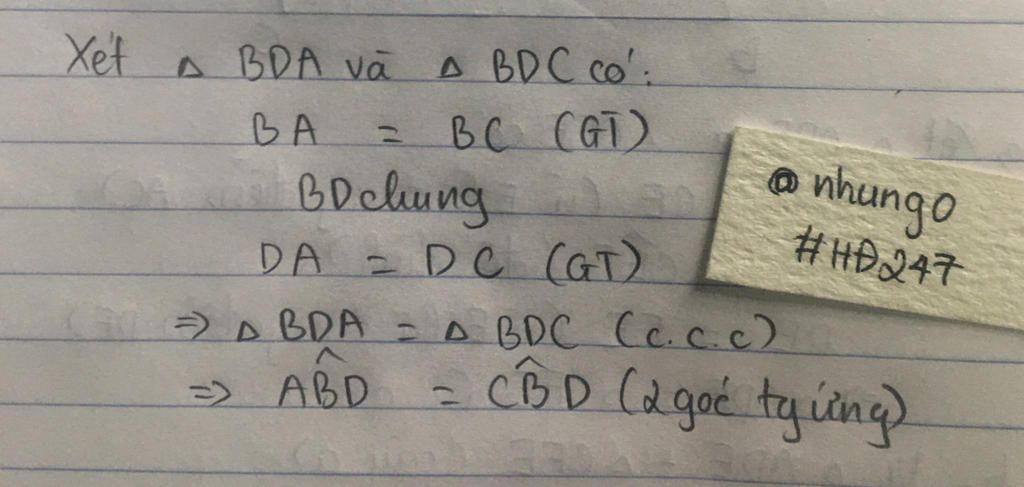 Xét △ BDA và △ BDC có:
BA = BC (GT)
BD chung
DA = DC (GT)
=> △ BDA = △ BDC (c.c.c)
=> AB̂D = CB̂D (2 góc tg ứng)
@ nhungo
#HĐ247